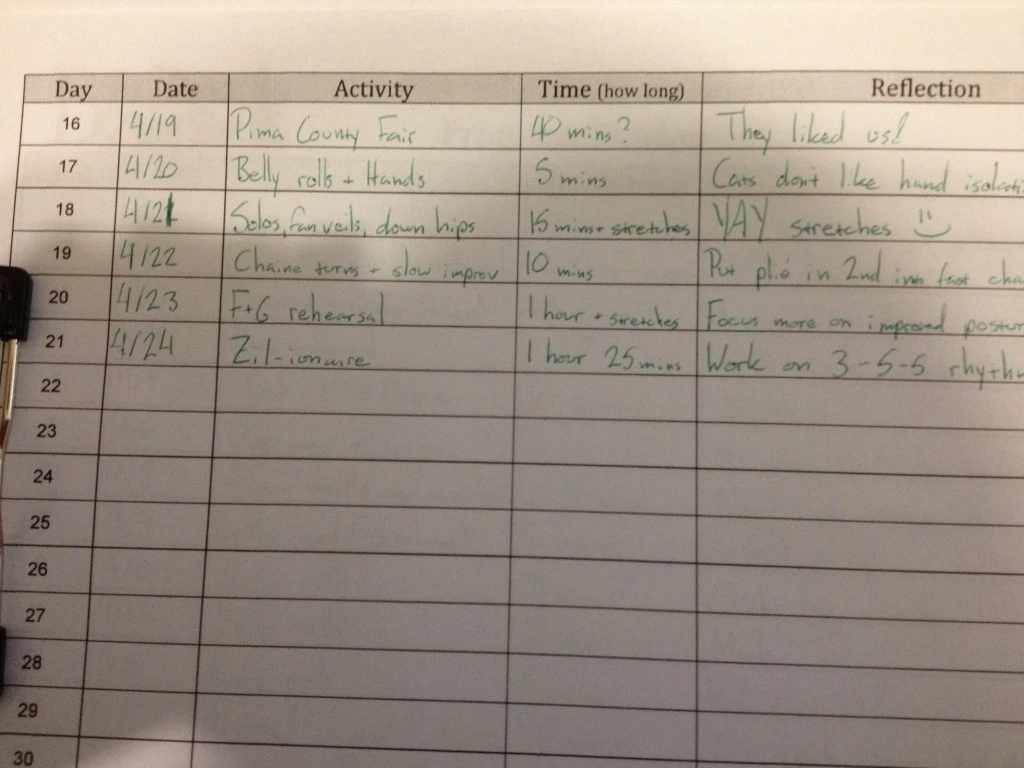 Day Date Activity Time (how long) Reflection
16 4/19 Pima County Fair 40 mins? They liked us!
17 4/20 Belly rolls + Hands 5 mins Cats don't like hand isolati
18 4/21 Solos, fan veils, down hips 15 mins + stretches YAY stretches
19 4/22 Chaine turns + slow improv 10 mins Put plié in 2nd into fast cha
20 4/23 F+G rehearsal 1 hour + stretches Focus more on improved postur
21 4/24 Zil-ionaire 1 hour 25 mins Work on 3-5-5 rhythm
22
23
24
25
26
27
28
29
30